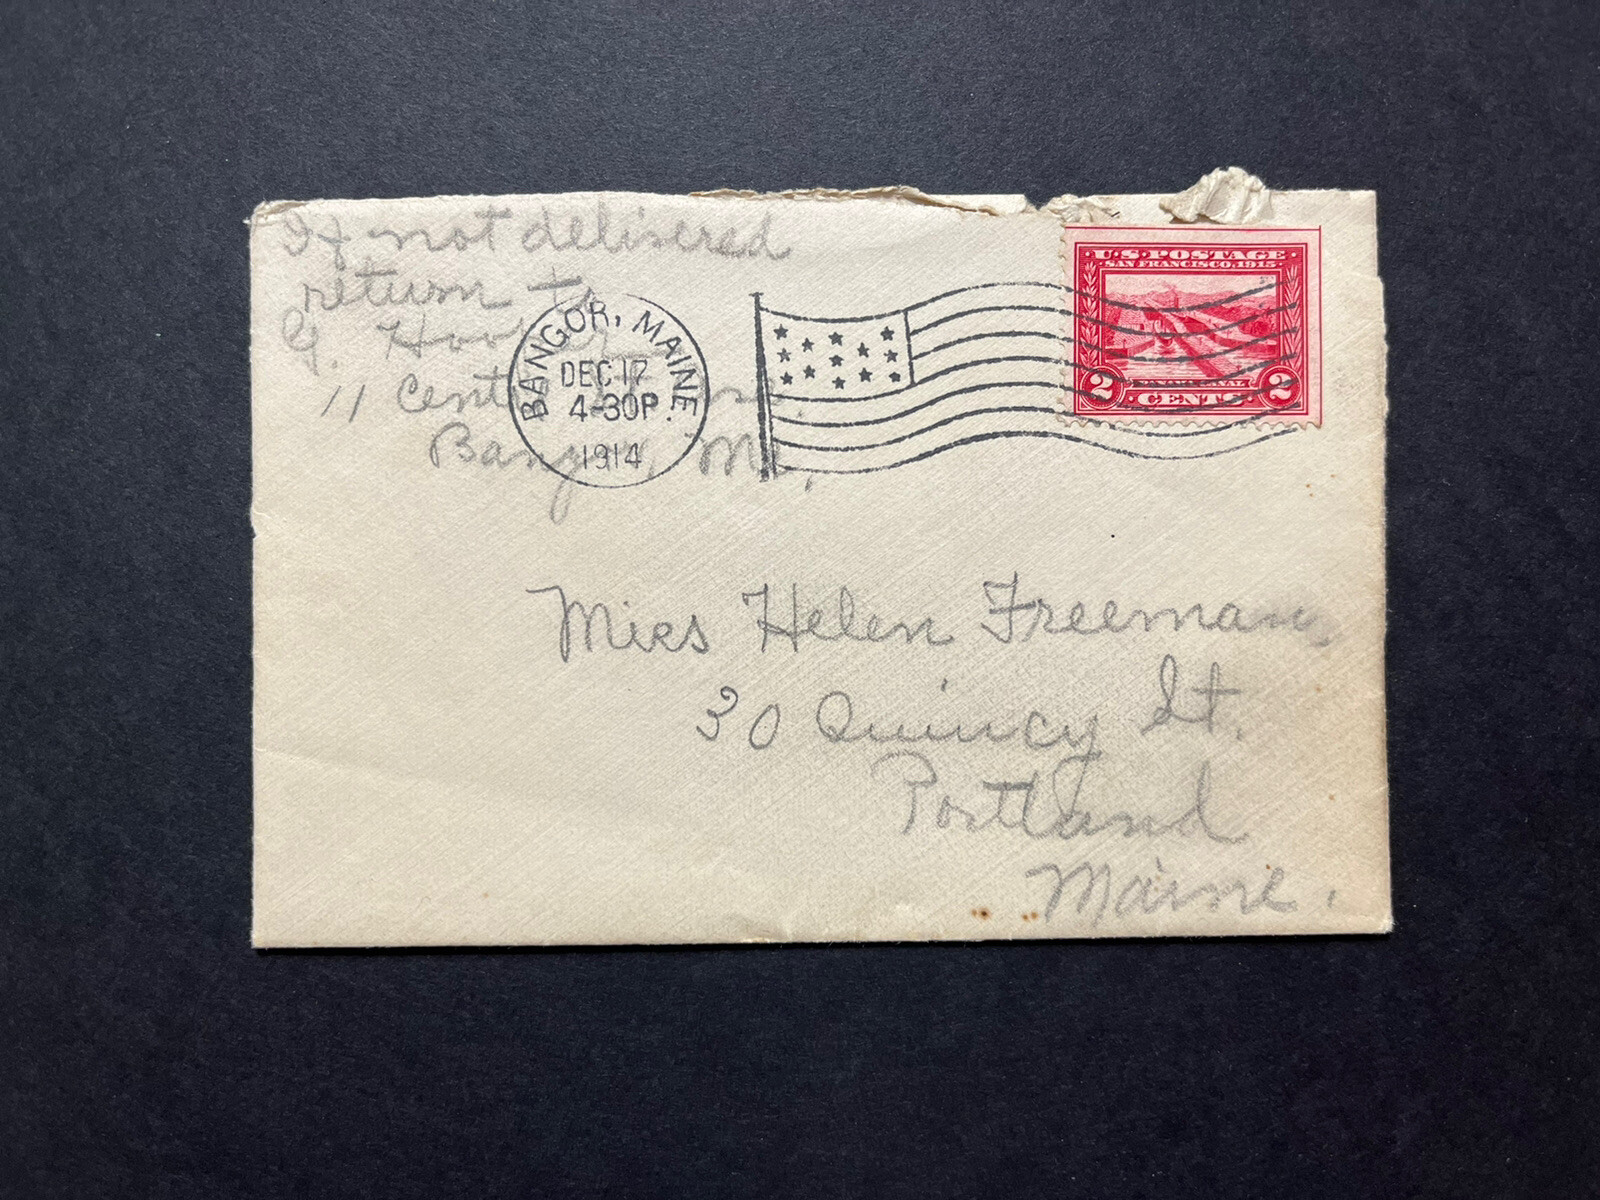 If not delivered
return to
G.
11
Bangor, Me,
BANGOR, MAINE.
DEC 17
4-30P
1914
U.S. POSTAGE
SAN FRANCISCO, 1915
PANAMA CANAL
2 CENTS 2
Miss Helen Freeman,
30 Quincy St.
Portland
Maine.